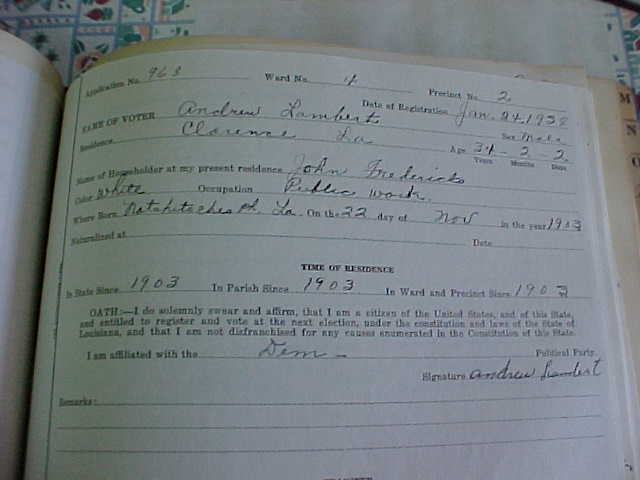 Application No. 963 Ward No. 4 Precinct No. 2
Date of Registration Jan. 24, 1938
NAME OF VOTER Andrew Lambert Sex Male
Residence Clarence La Age 34 2 2
Years Months Days
Name of Householder at my present residence John Fredericks
Color White Occupation Public work.
Where Born Natchitoches Ph. La. On the 22 day of Nov in the year 1903
Naturalized at Date
TIME OF RESIDENCE
In State Since 1903 In Parish Since 1903 In Ward and Precinct Since 1903
OATH:—I do solemnly swear and affirm, that I am a citizen of the United States, and of this State,
and entitled to register and vote at the next election, under the constitution and laws of the State of
Louisiana, and that I am not disfranchised for any causes enumerated in the Constitution of this State.
I am affiliated with the Dem — Political Party.
Signature Andrew Lambert
Remarks: